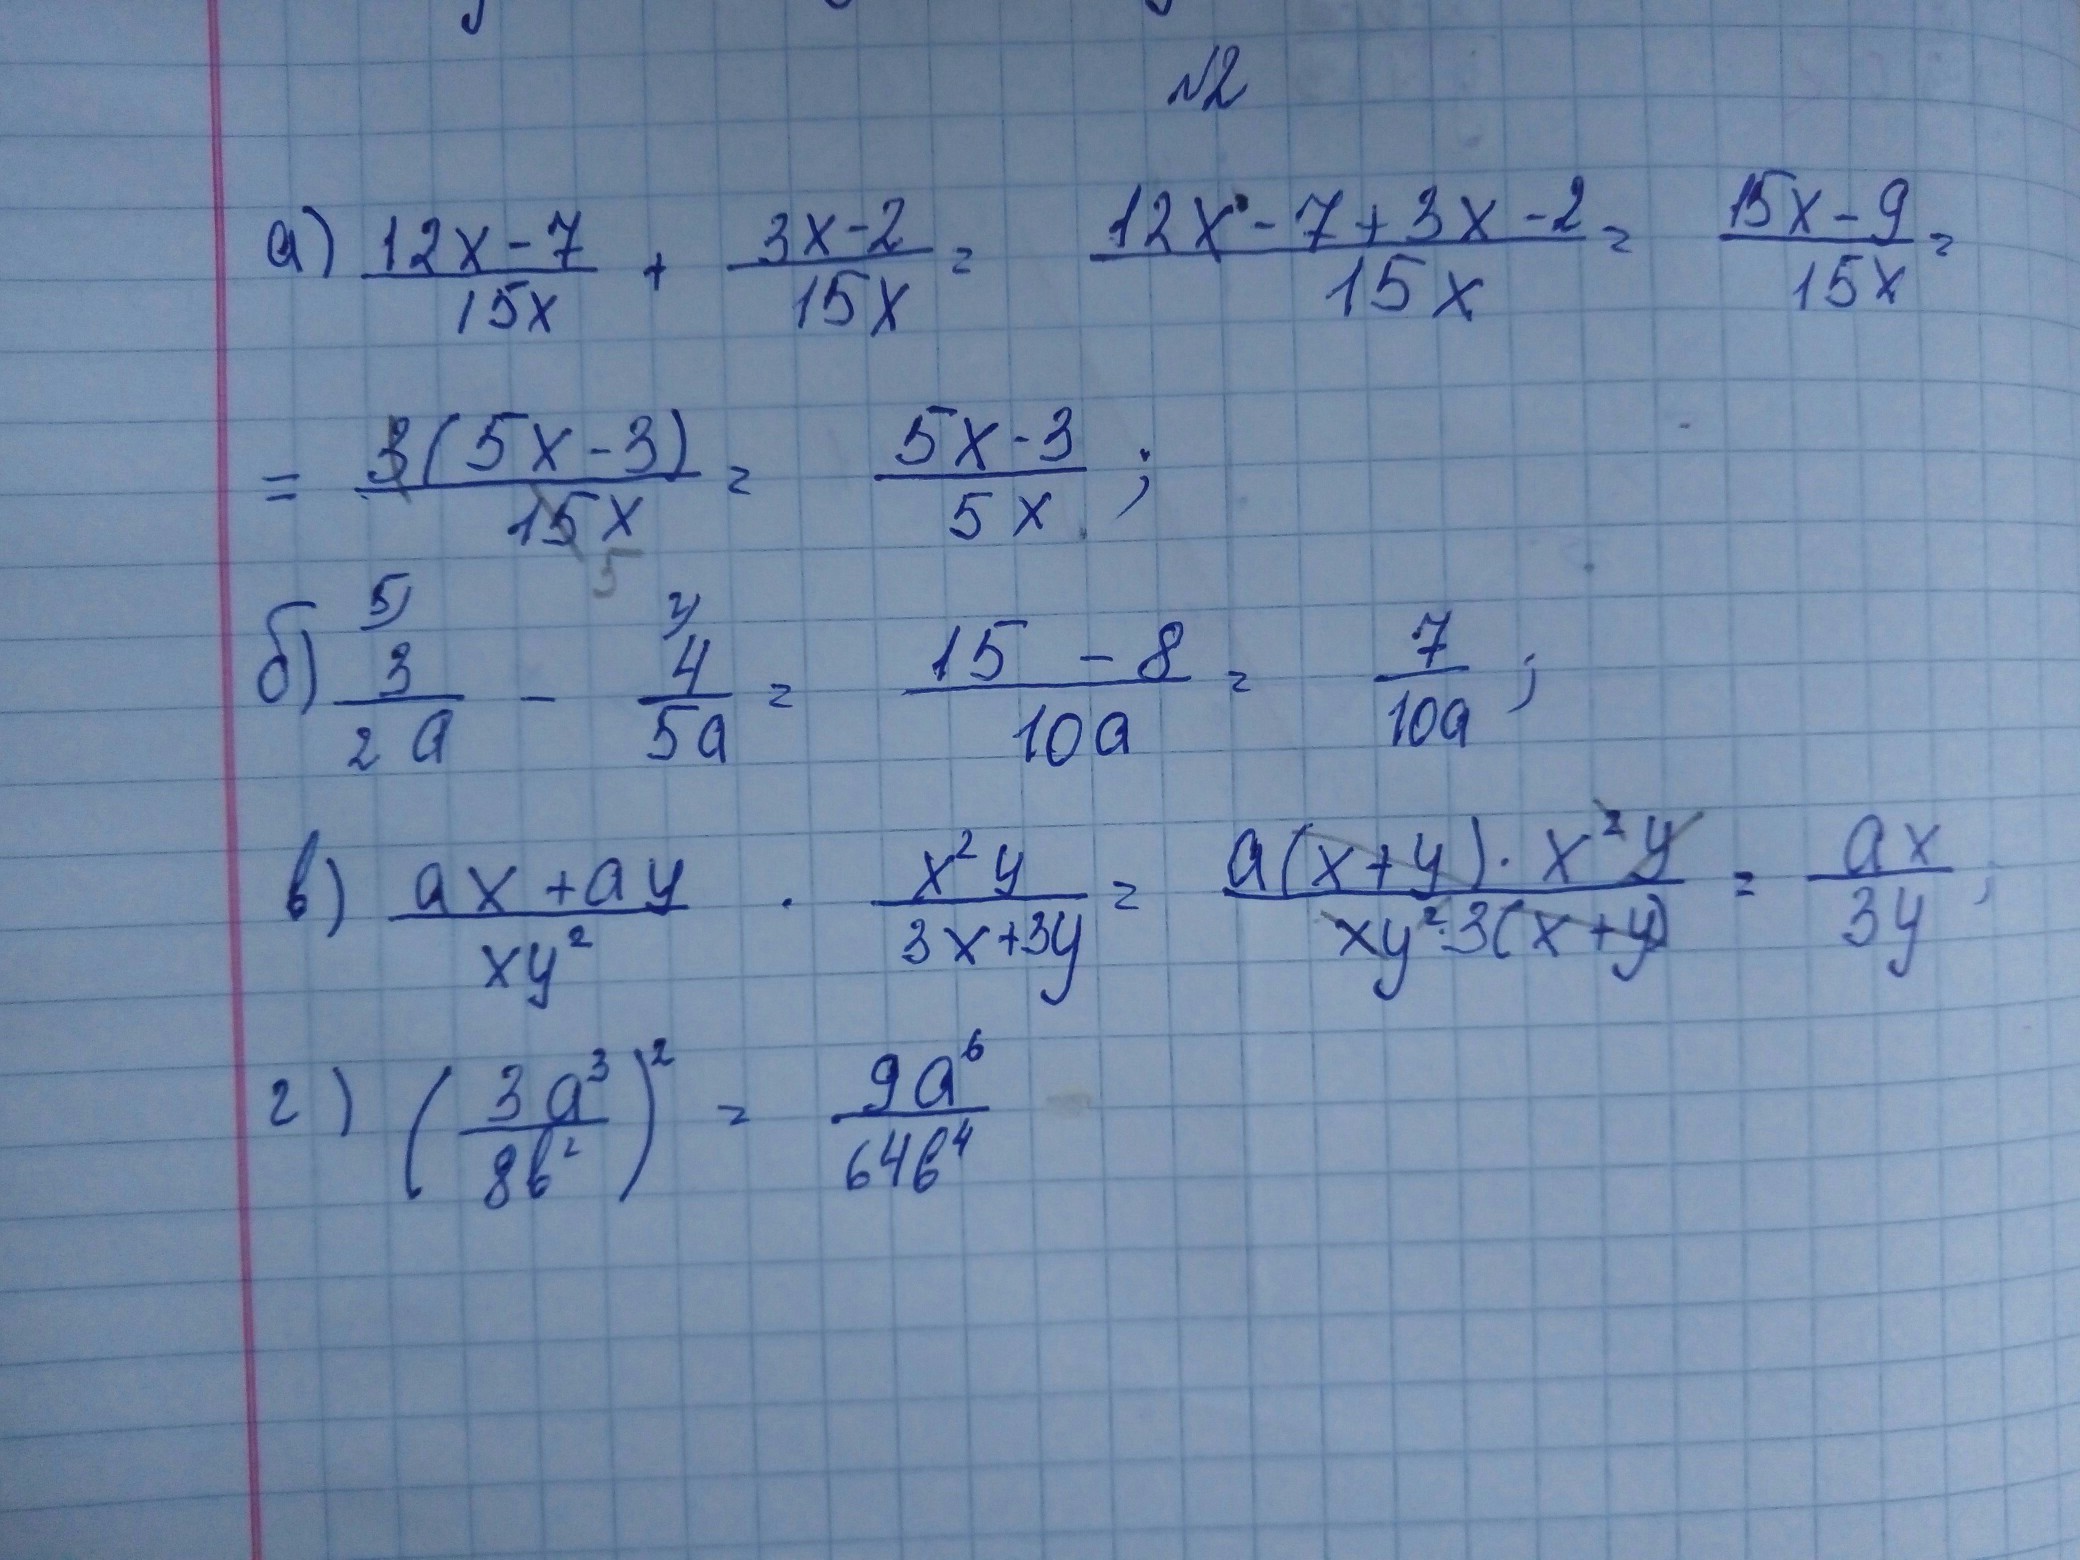 №2
а) (12x-7)/(15x) + (3x-2)/(15x) = (12x-7+3x-2)/(15x) = (15x-9)/(15x) =
= (3(5x-3))/(15x) = (5x-3)/(5x) ;
5
5) 2)
б) 3/(2a) - 4/(5a) = (15-8)/(10a) = 7/(10a) ;
в) (ax+ay)/(xy²) · (x²y)/(3x+3y) = (a(x+y)·x²y)/(xy²·3(x+y)) = (ax)/(3y) ;
г) ((3a³)/(8b²))² = (9a⁶)/(64b⁴)